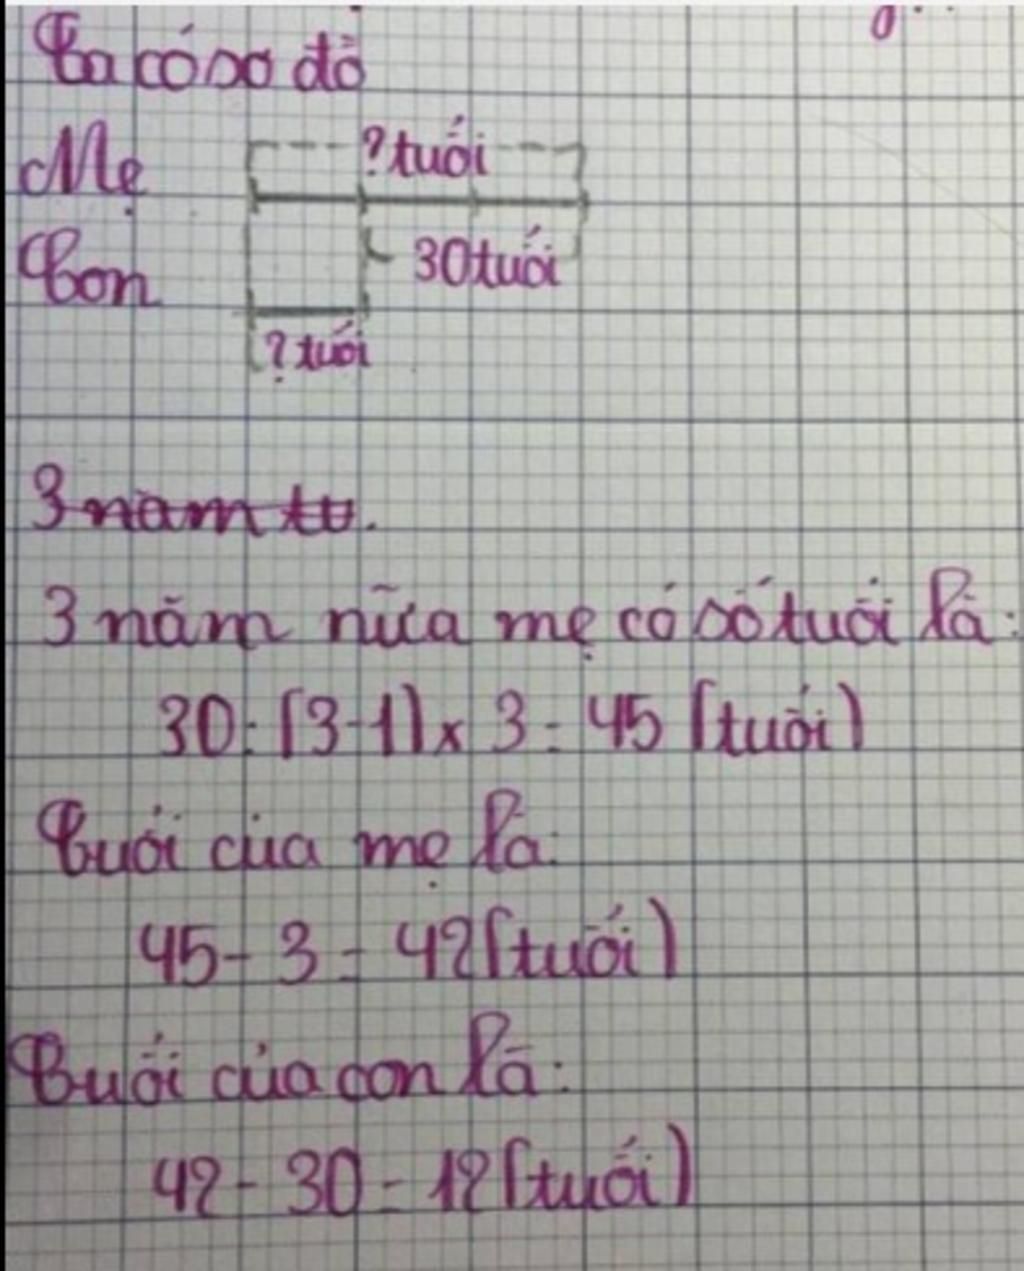 Ta có sơ đồ
Mẹ
? tuổi
30 tuổi
Con
? tuổi
3 năm tu.
3 năm nữa mẹ có số tuổi là:
30 : (3-1) x 3 = 45 (tuổi)
Tuổi của mẹ là:
45 - 3 = 42 (tuổi)
Tuổi của con là:
42 - 30 = 12 (tuổi)